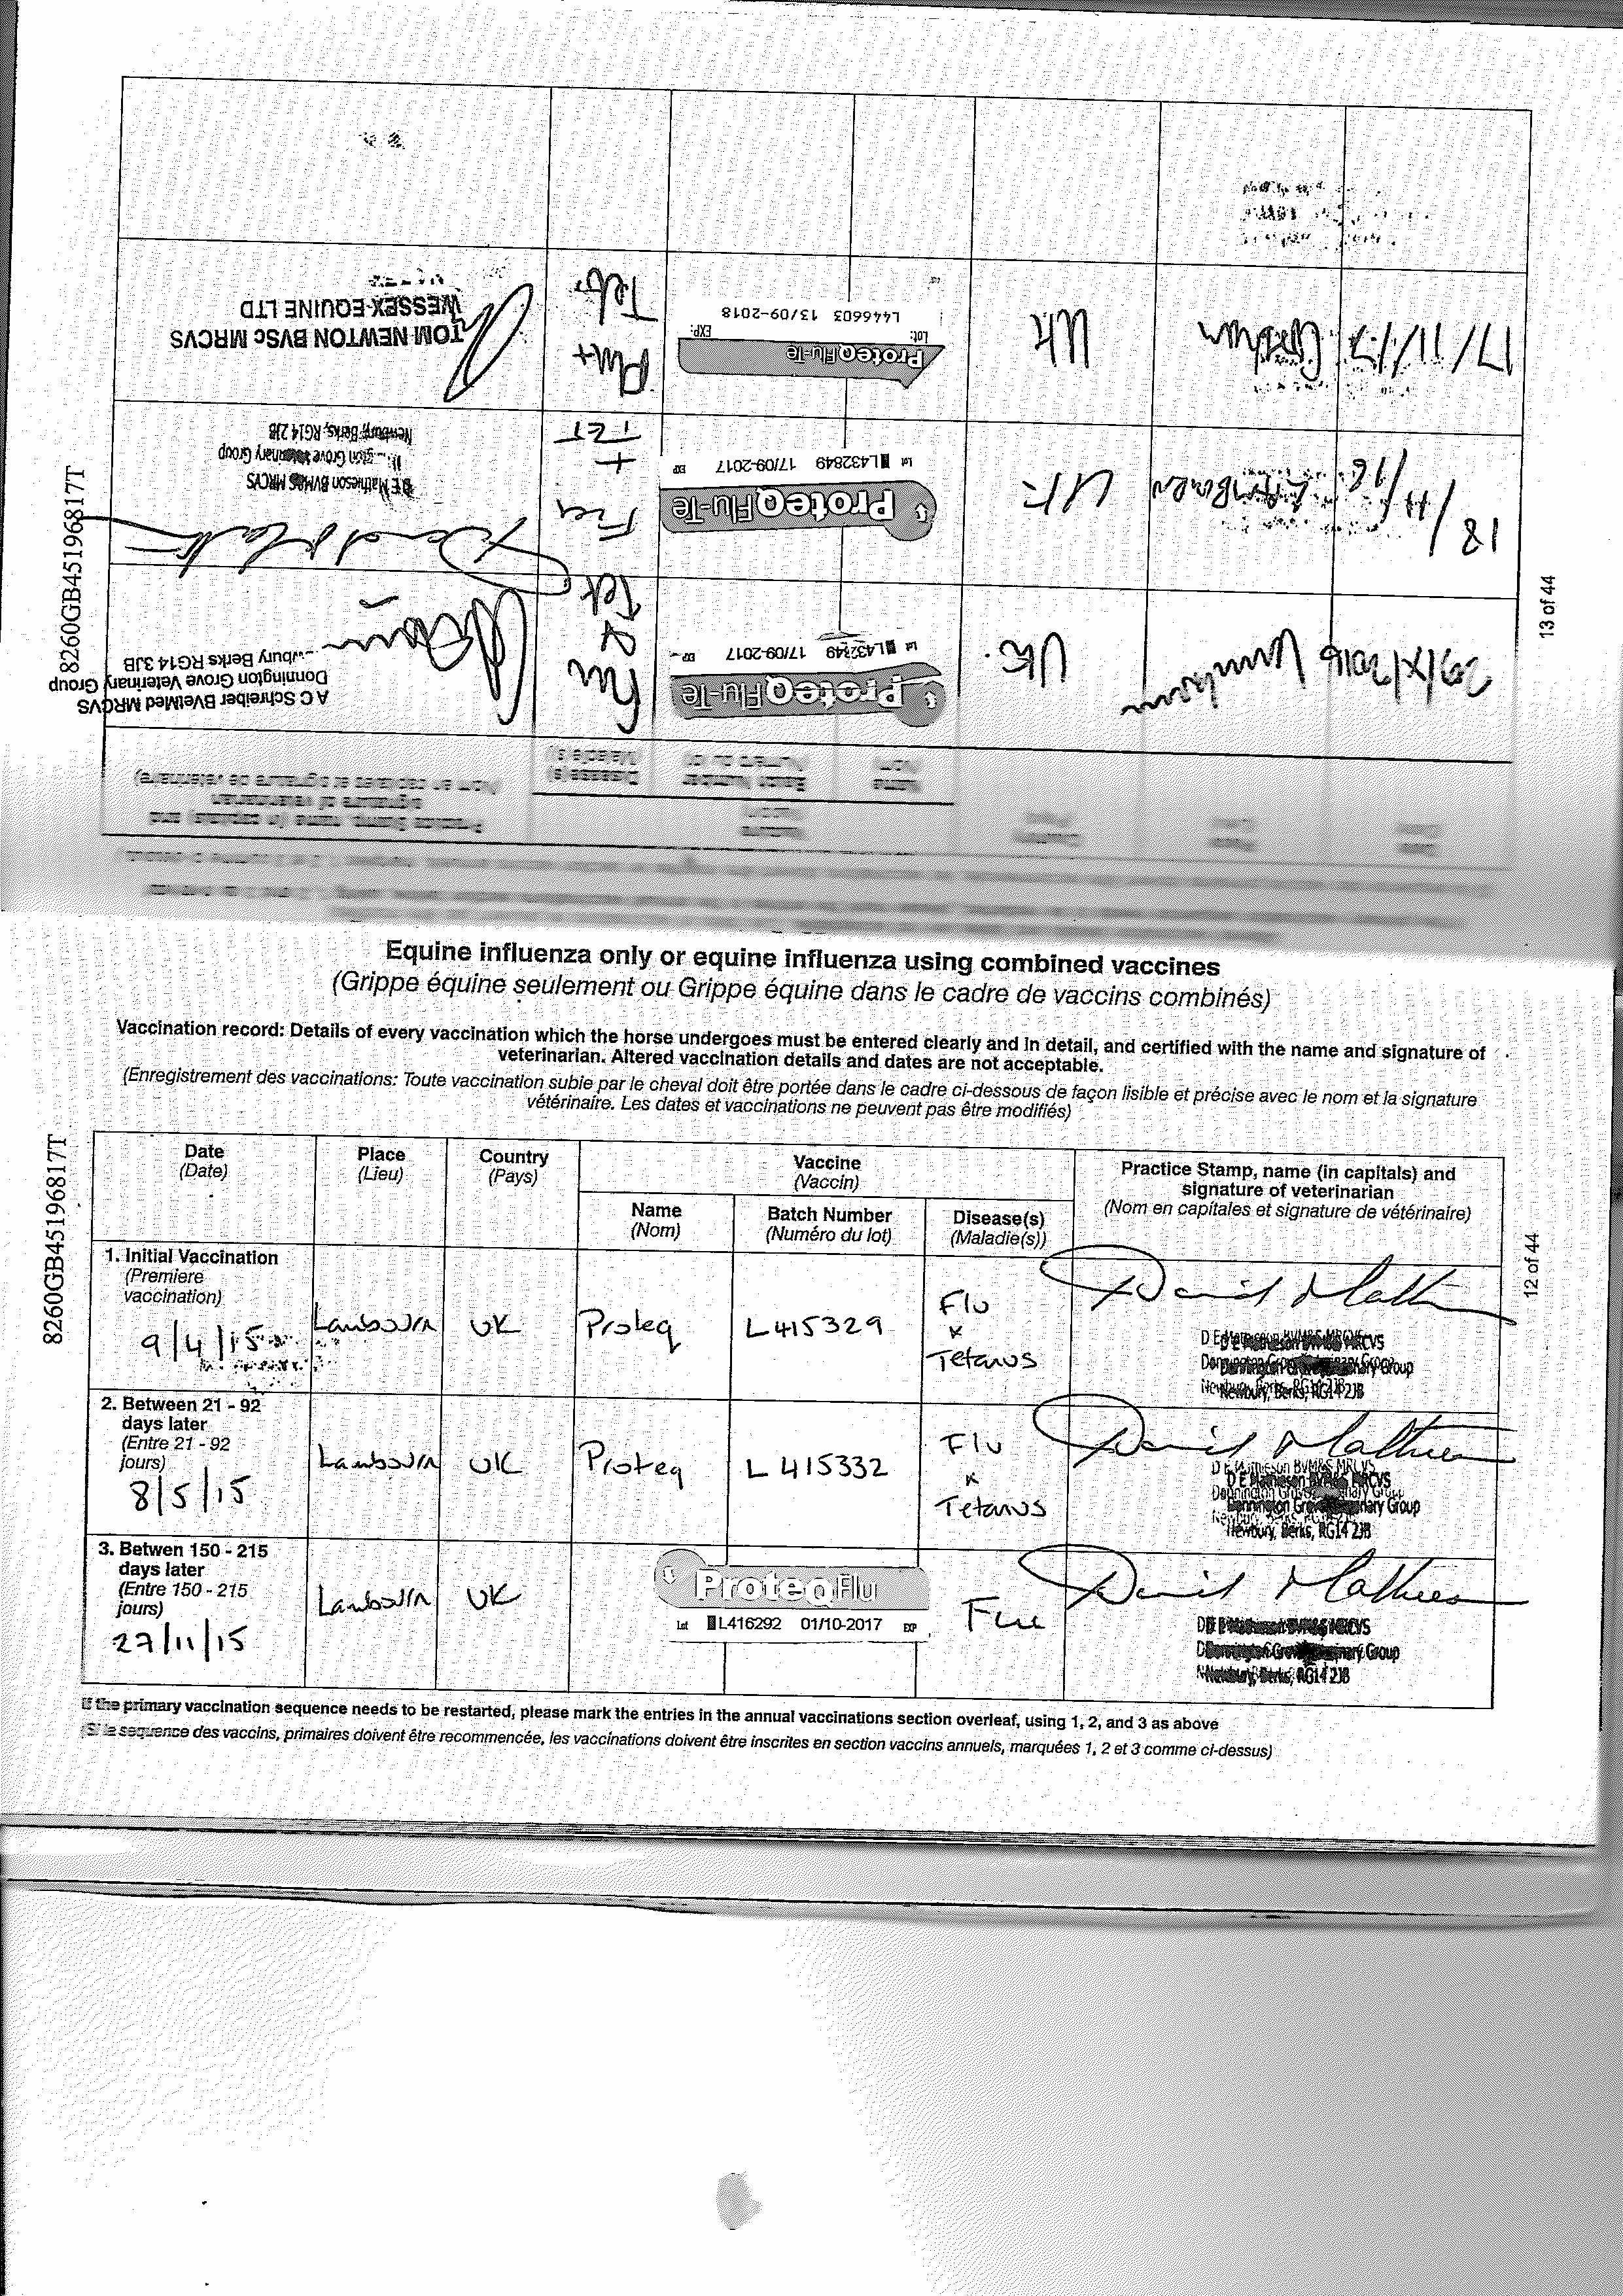 8260GB45196817T
12 of 44
Equine influenza only or equine influenza using combined vaccines
(Grippe équine seulement ou Grippe équine dans le cadre de vaccins combinés)
Vaccination record: Details of every vaccination which the horse undergoes must be entered clearly and in detail, and certified with the name and signature of
veterinarian. Altered vaccination details and dates are not acceptable.
(Enregistrement des vaccinations: Toute vaccination subie par le cheval doit être portée dans le cadre ci-dessous de façon lisible et précise avec le nom et la signature
vétérinaire. Les dates et vaccinations ne peuvent pas être modifiés)
Date
(Date)
Place
(Lieu)
Country
(Pays)
Vaccine
(Vaccin)
Name
(Nom)
Batch Number
(Numéro du lot)
Disease(s)
(Maladie(s))
Practice Stamp, name (in capitals) and
signature of veterinarian
(Nom en capitales et signature de vétérinaire)
1. Initial Vaccination
(Premiere
vaccination)
9/4/15
Lambourn
UK
Proteq
L415329
Flu
&
Tetanus
D E Matheson BVM&S MRCVS
Donnington Grove Veterinary Group
Newbury, Berks, RG14 2JB
2. Between 21 - 92
days later
(Entre 21 - 92
jours)
8/5/15
Lambourn
UK
Proteq
L 415332
Flu
&
Tetanus
D E Matheson BVM&S MRCVS
Donnington Grove Veterinary Group
Newbury, Berks, RG14 2JB
3. Betwen 150 - 215
days later
(Entre 150 - 215
jours)
27/11/15
Lambourn
UK
ProteqFlu
Lot L416292 01/10-2017 EXP
Flu
D E Matheson BVM&S MRCVS
Donnington Grove Veterinary Group
Newbury, Berks, RG14 2JB
If the primary vaccination sequence needs to be restarted, please mark the entries in the annual vaccinations section overleaf, using 1, 2, and 3 as above
(Si le sequence des vaccins, primaires doivent être recommencée, les vaccinations doivent être inscrites en section vaccins annuels, marquées 1, 2 et 3 comme ci-dessus)
8260GB45196817T
13 of 44
Date
Place
Name
Batch Number
Disease(s)
Practice Stamp, name (in capitals) and
signature of veterinarian
(Nom en capitales et signature de vétérinaire)
29/IX/2016
UK.
ProteqFlu-Te
Lot 17/09-2017 EXP
Flu
&
Tet
A C Schreiber BVetMed MRCVS
Donnington Grove Veterinary Group
Berks RG14 3JB
18/11/16
Lambourn
UK
ProteqFlu-Te
Lot L432849 17/09-2017 EXP
Flu
+
TET
D E Matheson BVM&S MRCVS
Grove Veterinary Group
Newbury, Berks, RG14 2JB
17/11/17
UK
ProteqFlu-Te
Lot: EXP:
L446603 13/09-2018
Flu+
Tet
TOM NEWTON BVSc MRCVS
WESSEX EQUINE LTD